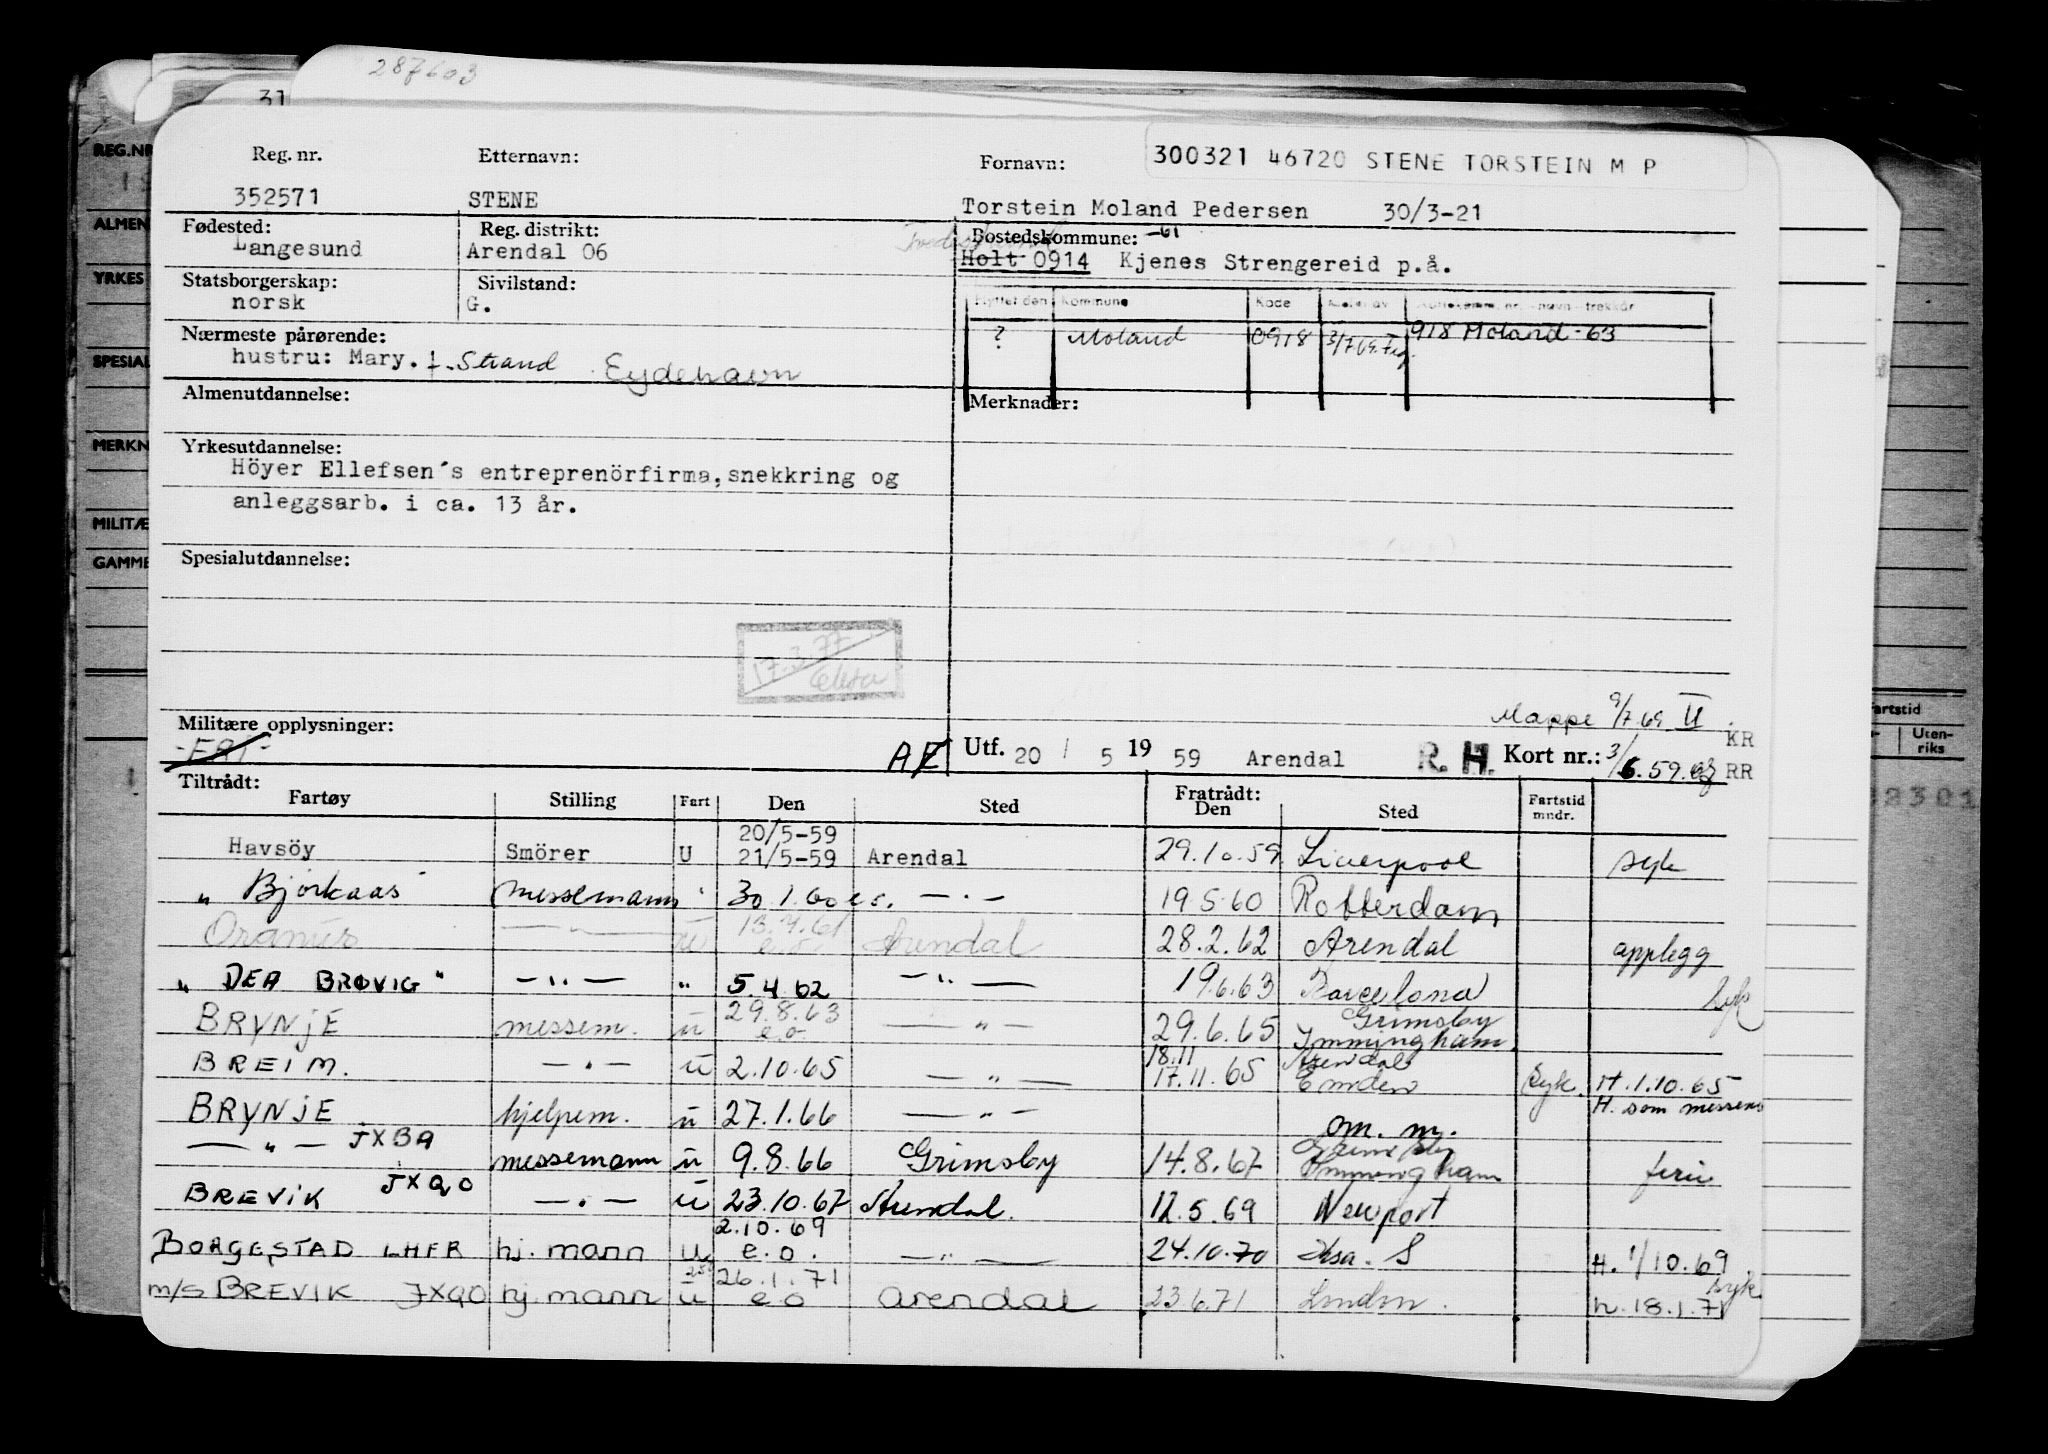 287603
31
REG.NR
ALMEN
YRKES
SPESIAL
MERKN
MILITÆ
GAMME
Reg. nr. Etternavn: Fornavn: 300321 46720 STENE TORSTEIN M P
352571 STENE Torstein Moland Pedersen 30/3-21
Fødested: Reg. distrikt: Bostedskommune: -61
Langesund Arendal 06 Holt 0914 Kjenes Strengereid p.å.
Statsborgerskap: Sivilstand:
norsk G.
Flyttet den Kommune Kode
? Moland 0918 3/7 69 918 Moland-63
Nærmeste pårørende:
hustru: Mary. f. Strand Eydehavn
Almenutdannelse: Merknader:
Yrkesutdannelse:
Höyer Ellefsen's entreprenörfirma, snekkring og
anleggsarb. i ca. 13 år.
Spesialutdannelse:
17.3.77
Mappe 9/7 69 II
Militære opplysninger:
AE Utf. 20 / 5 1959 Arendal R. H. Kort nr.: 3/6.59. KR RR
artstid
Uten-
riks
Tiltrådt: Fratrådt:
Fartøy Stilling Fart Den Sted Den Sted Fartstid mndr.
Havsöy Smörer U 20/5-59 21/5-59 Arendal 29.10.59 Liverpool syk
„ Bjorkaas" messemann " 30.1.60 e.o. — " — 19.5.60 Rotterdam
Oranus — " — u 13.4.61 e.o. Arendal 28.2.62 Arendal opplegg
„ DEA BRØVIG " — " — " 5.4.62 — " — 19.6.63 Barcelona syk
BRYNJE messem. u 29.8.63 e.o. — " — 29.6.65 Grimsby Immingham
BREIM. — " — u 2.10.65 — " — 18.11 17.11.65 Arendal Emden Syk. H.1.10.65
BRYNJE hjelpem. u 27.1.66 — " — om. m. H. som messem
— " — JXBA messemann u 9.8.66 Grimsby 14.8.67 Grimsby Immingham ferie
BREVIK JXQO — " — u 23.10.67 Arendal. 12.5.69 Newport
BORGESTAD LHFR hj. mann u 2.10.69 e.o. — " — 24.10.70 H. 1/10.69
m/s BREVIK JXQO hj. mann u 26.1.71 e o arendal 23.6.71 London. syk h. 18.1.71